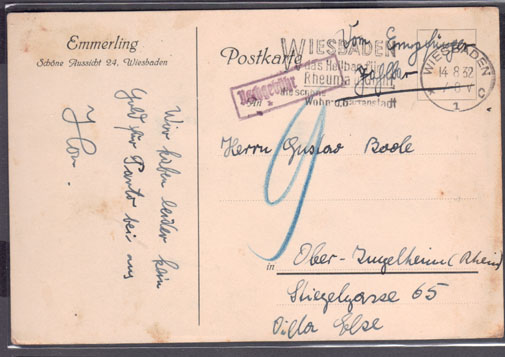 Emmerling
Schöne Aussicht 24, Wiesbaden
Wir haben leider kein
Geld für Porto bei uns
Postkarte
Vom Empfänger
zahlbar
WIESBADEN
das Heilbad für
Rheuma
die schöne
Wohn-u.
Gartenstadt
WIESBADEN
14.8.32
1 c
Nachgebühr
An
9
Herrn Gustav Boole
in Ober-Ingelheim (Rhein)
Stiegelgasse 65
Villa Else